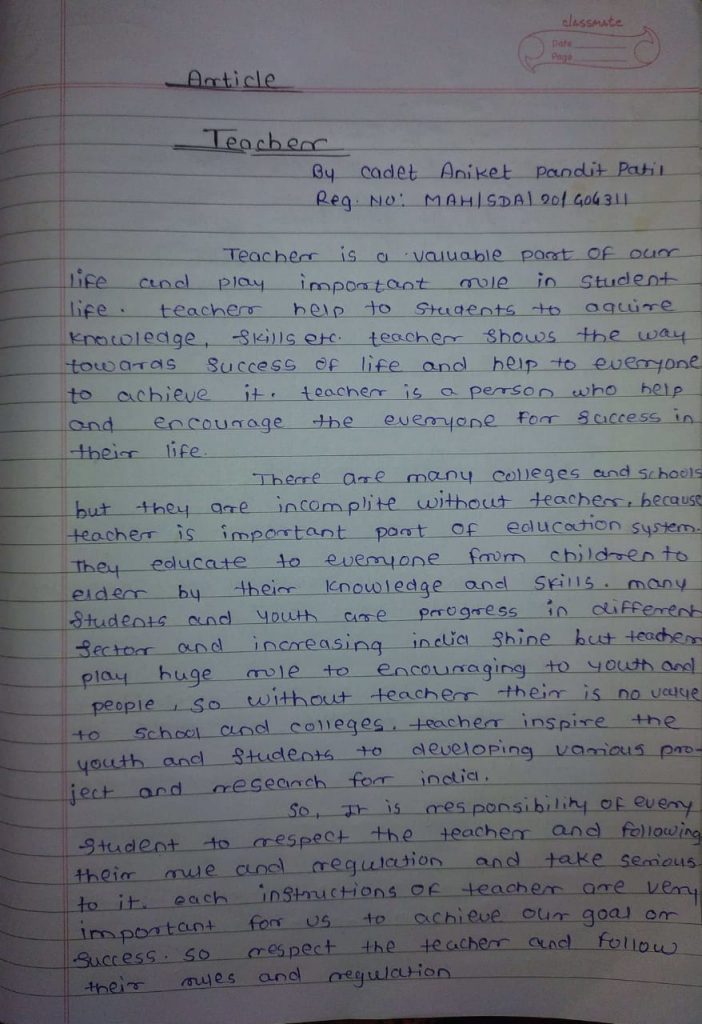 classmate
Date
Page
Article
Teacher
By cadet Aniket Pandit Patil
Reg. No: MAH/SDA/20/404311
Teacher is a valuable part of our
life and play important role in student
life. teacher help to students to aquire
knowledge, skills etc. teacher shows the way
towards success of life and help to everyone
to achieve it. teacher is a person who help
and encourage the everyone for success in
their life.
There are many colleges and schools
but they are incomplite without teacher, because
teacher is important part of education system.
They educate to everyone from children to
elder by their knowledge and skills. many
students and youth are progress in different
sector and increasing india shine but teacher
play huge role to encouraging to youth and
people, so without teacher their is no value
to school and colleges. teacher inspire the
youth and students to developing various pro-
ject and research for india.
So, It is responsibility of every
student to respect the teacher and following
their rule and regulation and take serious
to it. each instructions of teacher are very
important for us to achieve our goal or
success. so respect the teacher and follow
their rules and regulation